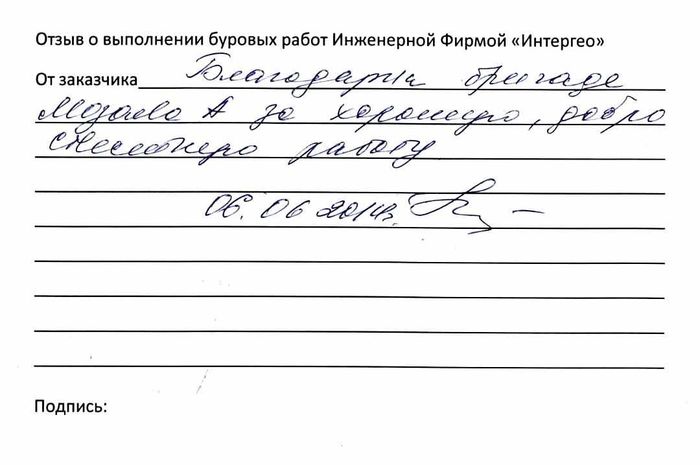 Отзыв о выполнении буровых работ Инженерной Фирмой «Интергео»
От заказчика Благодарна бригаде
А за хорошую, добро
работу
06.06 2014г.
Подпись: